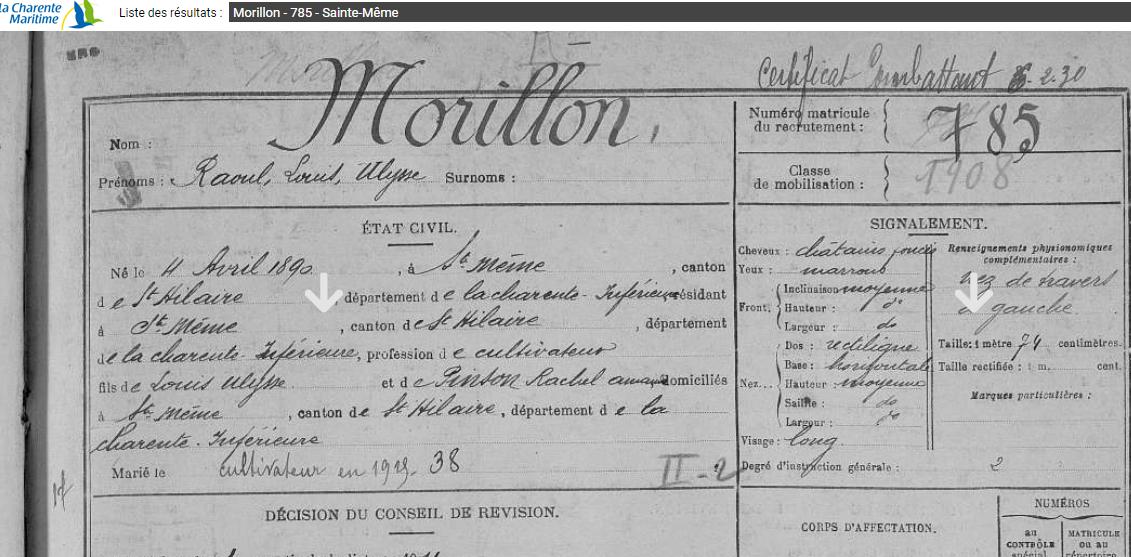 la Charente
Maritime
Liste des résultats : Morillon - 785 - Sainte-Même
Certificat Combattant 6.2.30
Morillon.
Nom :
Prénoms : Raoul, Louis, Ulysse Surnoms :
Numéro matricule
du recrutement : 785
Classe
de mobilisation : 1908
ÉTAT CIVIL.
Né le 4 Avril 1890, à St Même, canton
de St Hilaire département de la charente-Inférieure résidant
à St Même, canton de St Hilaire, département
de la charente-Inférieure, profession de cultivateur
fils de Louis Ulysse et de Pinson Rachel domiciliés
à St Même, canton de St Hilaire, département de la
charente-Inférieure
Marié le cultivateur en 38
II-2
SIGNALEMENT.
Cheveux : châtains foncés
Yeux : marrons
Front. Inclinaison moyenne
Hauteur : do
Largeur : do
Nez... Dos : rectiligne
Base : horizontale
Hauteur : moyenne
Saillie : do
Largeur : do
Visage : long.
Renseignements physionomiques
complémentaires :
nez de travers
à gauche.
Taille : 1 mètre 74 centimètres.
Taille rectifiée : 1 m. cent.
Marques particulières :
Degré d'instruction générale : 2
DÉCISION DU CONSEIL DE REVISION.
CORPS D'AFFECTATION.
NUMÉROS
au
CONTRÔLE
spécial
MATRICULE
ou au
répertoire